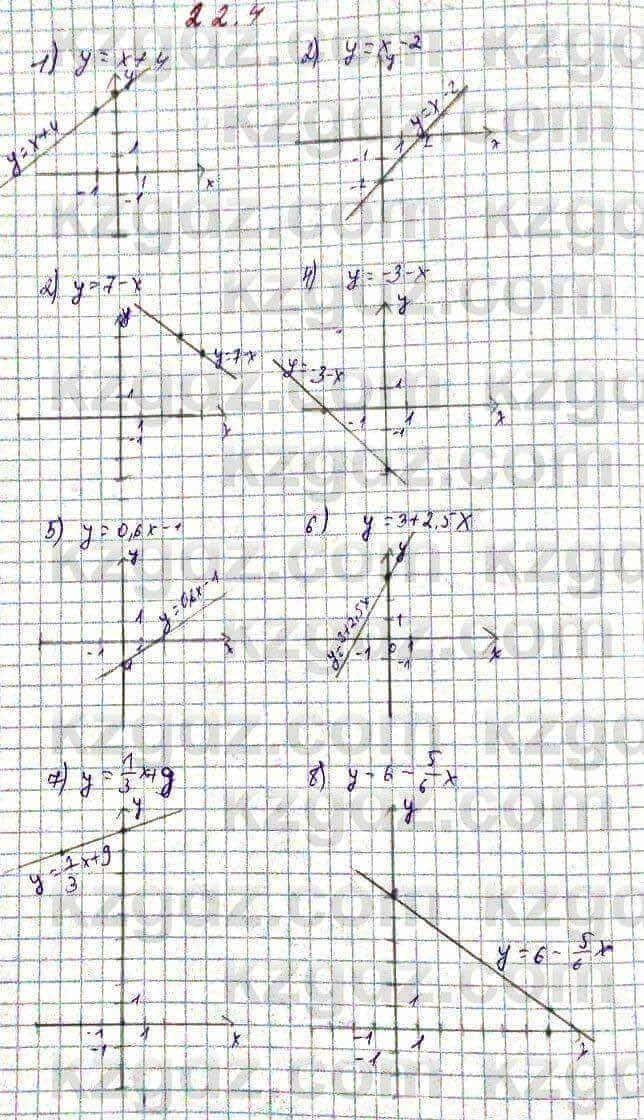 22.4
1) y = x + 4
2) y = x - 2
y
y
y = x + 4
y = x - 2
1
-1
1
-1
x
1
2
-1
-2
x
2) y = 7 - x
4) y = -3 - x
y
y
y = 7 - x
y = -3 - x
1
1
-1
x
1
-1
1
-1
x
5) y = 0,6x - 1
6) y = 3 + 2,5x
y
y
y = 0,6x - 1
y = 3 + 2,5x
1
-1
1
x
1
-1
0
1
-1
x
7) y = 1/3 x + 9
8) y - 6 - 5/6 x
y
y
y = 1/3 x + 9
y = 6 - 5/6 x
1
-1
1
-1
x
1
-1
1
-1
x
kzgdz.com